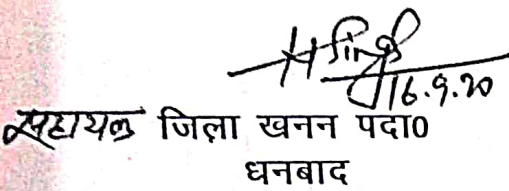 16.9.20
सहायक जिला खनन पदा0
धनबाद